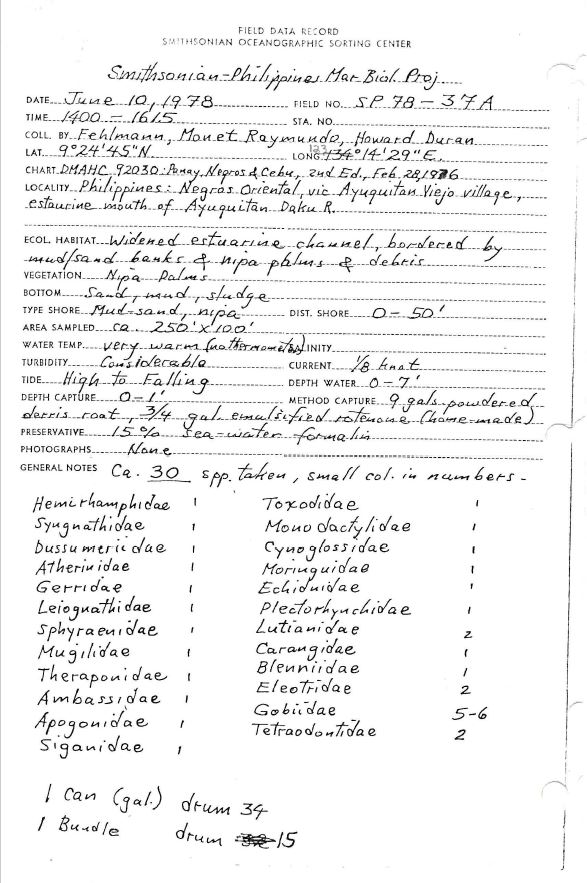 FIELD DATA RECORD
SMITHSONIAN OCEANOGRAPHIC SORTING CENTER
Smithsonian-Philippines Mar. Biol. Proj.
DATE June 10, 1978 FIELD NO. SP 78-37A
TIME 1400-1615 STA. NO.
COLL. BY Fehlmann, Monet Raymundo, Howard Duran
LAT. 9°24'45"N LONG. 123 134°14'29"E.
CHART DMAHC 92030: Panay, Negros & Cebu, 2nd Ed., Feb. 28, 1976
LOCALITY Philippines: Negros Oriental, vic Ayuquitan Viejo village,
estaurine mouth of Ayuquitan Daku R.
ECOL. HABITAT Widened estuarine channel, bordered by
mud/sand banks & nipa palms & debris
VEGETATION Nipa Palms
BOTTOM Sand, mud, sludge
TYPE SHORE Mud-sand, nipa DIST. SHORE 0-50'
AREA SAMPLED ca. 250' x 100'
WATER TEMP. very warm (no thermometer) INITY
TURBIDITY Considerable CURRENT 1/8 knot
TIDE High to Falling DEPTH WATER 0-7'
DEPTH CAPTURE 0-1' METHOD CAPTURE 9 gals powdered
derris root, 3/4 gal emulsified rotenone (home-made)
PRESERVATIVE 15% sea-water formalin
PHOTOGRAPHS None
GENERAL NOTES Ca. 30 spp. taken, small col. in numbers-
Hemirhamphidae 1 Toxodidae 1
Syngnathidae 1 Monodactylidae 1
Dussumeriidae 1 Cynoglossidae 1
Atherinidae 1 Moringuidae 1
Gerridae 1 Echidnidae 1
Leiognathidae 1 Plectorhynchidae 1
Sphyraenidae 1 Lutianidae 2
Mugilidae 1 Carangidae 1
Theraponidae 1 Blenniidae 1
Ambassidae 1 Eleotridae 2
Apogonidae 1 Gobiidae 5-6
Siganidae 1 Tetraodontidae 2
1 Can (gal.) drum 34
1 Bundle drum 15